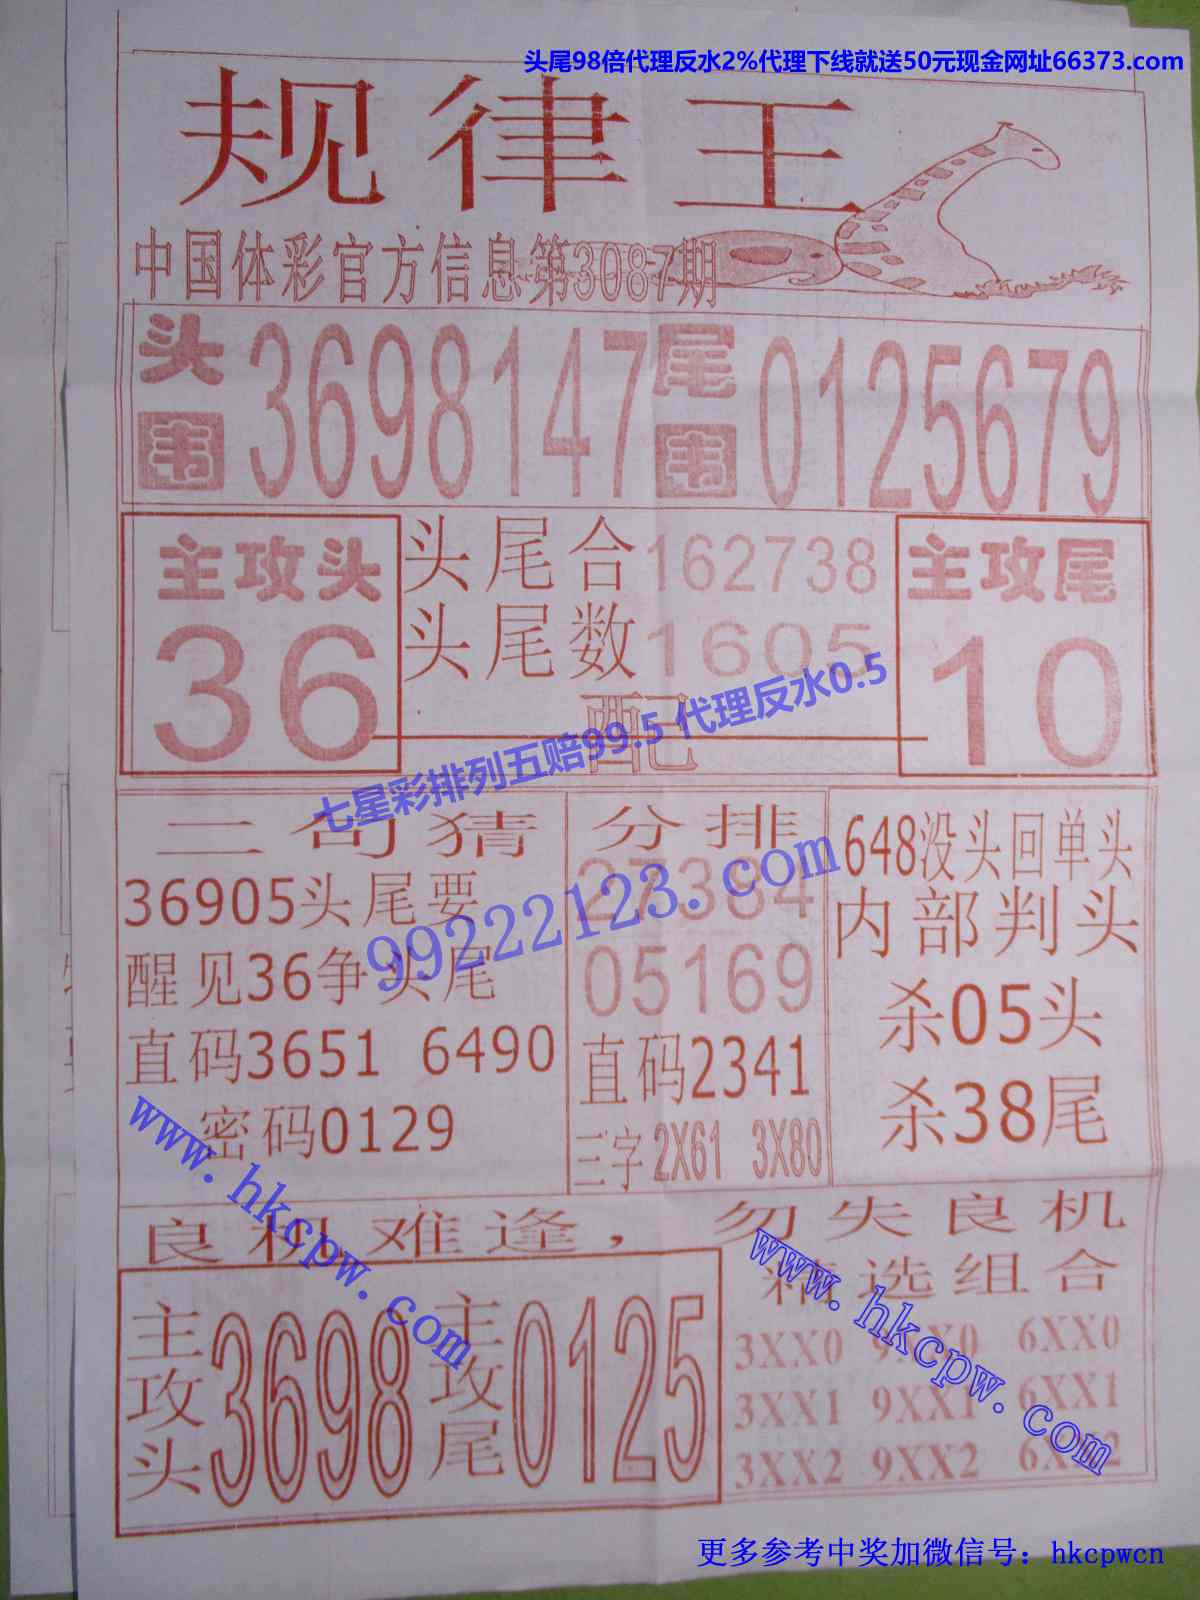 头尾98倍代理反水2%代理下线就送50元现金网址66373.com
规律王
中国体彩官方信息第3087期
头围 3698147 尾围 0125679
主攻头 36
头尾合 162738
头尾数 1605
配
主攻尾 10
七星彩排列五赔99.5 代理反水0.5
99222123.com
三句猜
36905头尾要
醒见36争头尾
直码3651 6490
密码0129
分排
27384
05169
直码2341
三字 2X61 3X80
648没头回单头
内部判头
杀05头
杀38尾
www.hkcpw.com
良机难逢，勿失良机
主攻头 3698 主攻尾 0125
精选组合
3XX0 9XX0 6XX0
3XX1 9XX1 6XX1
3XX2 9XX2 6XX2
www.hkcpw.com
更多参考中奖加微信号：hkcpwcn